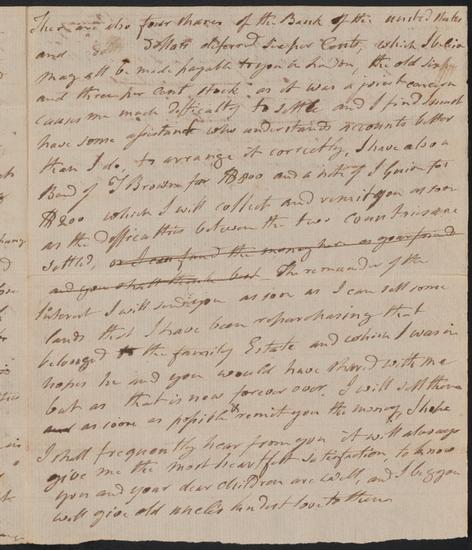 There are also four shares of the Bank of the United States
and Dollars deferred six per Cents, which I believe
may all be made payable to you in London, the old six p
and three per Cent stock as it was a joint concern
causes me much difficulty to settle and I find I must
have some assistant who understands accounts better
than I do, to arrange it correctly. I have also a
Bond of T Brown for 800 and a note of J Guion for
200 which I will collect and remit you as soon
as the difficulties between the two countries are
settled, or I can fund the money here as your friend
and you shall think best The remainder of the
Interest I will send you as soon as I can sell some
lands that I have been repurchasing that
belonged to the family Estate and which I was in
hopes he and you would have shared with me
but as that is now forever over, I will sell them
and as soon as possible remit you the money, I hope
I shall frequently hear from you it will always
give me the most heartfelt satisfaction to know
you and your dear children are well, and I beg you
will give old uncles kindest love to them